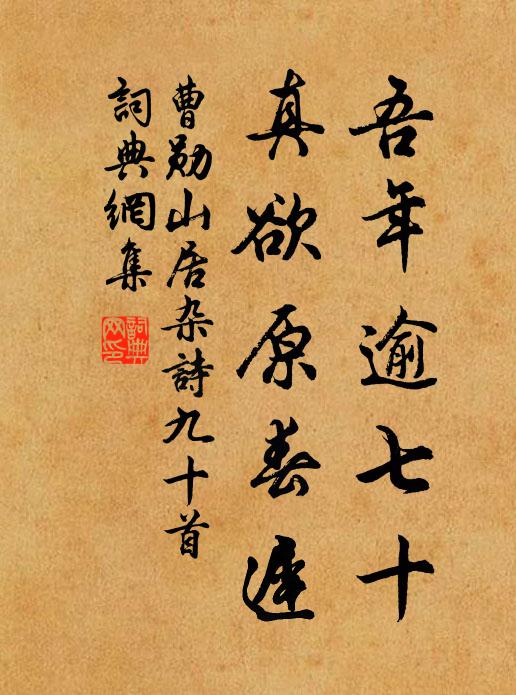 吾年逾七十
真欲原春遲
曹勛山居杂詩九十首
詞典網集
詞典网印